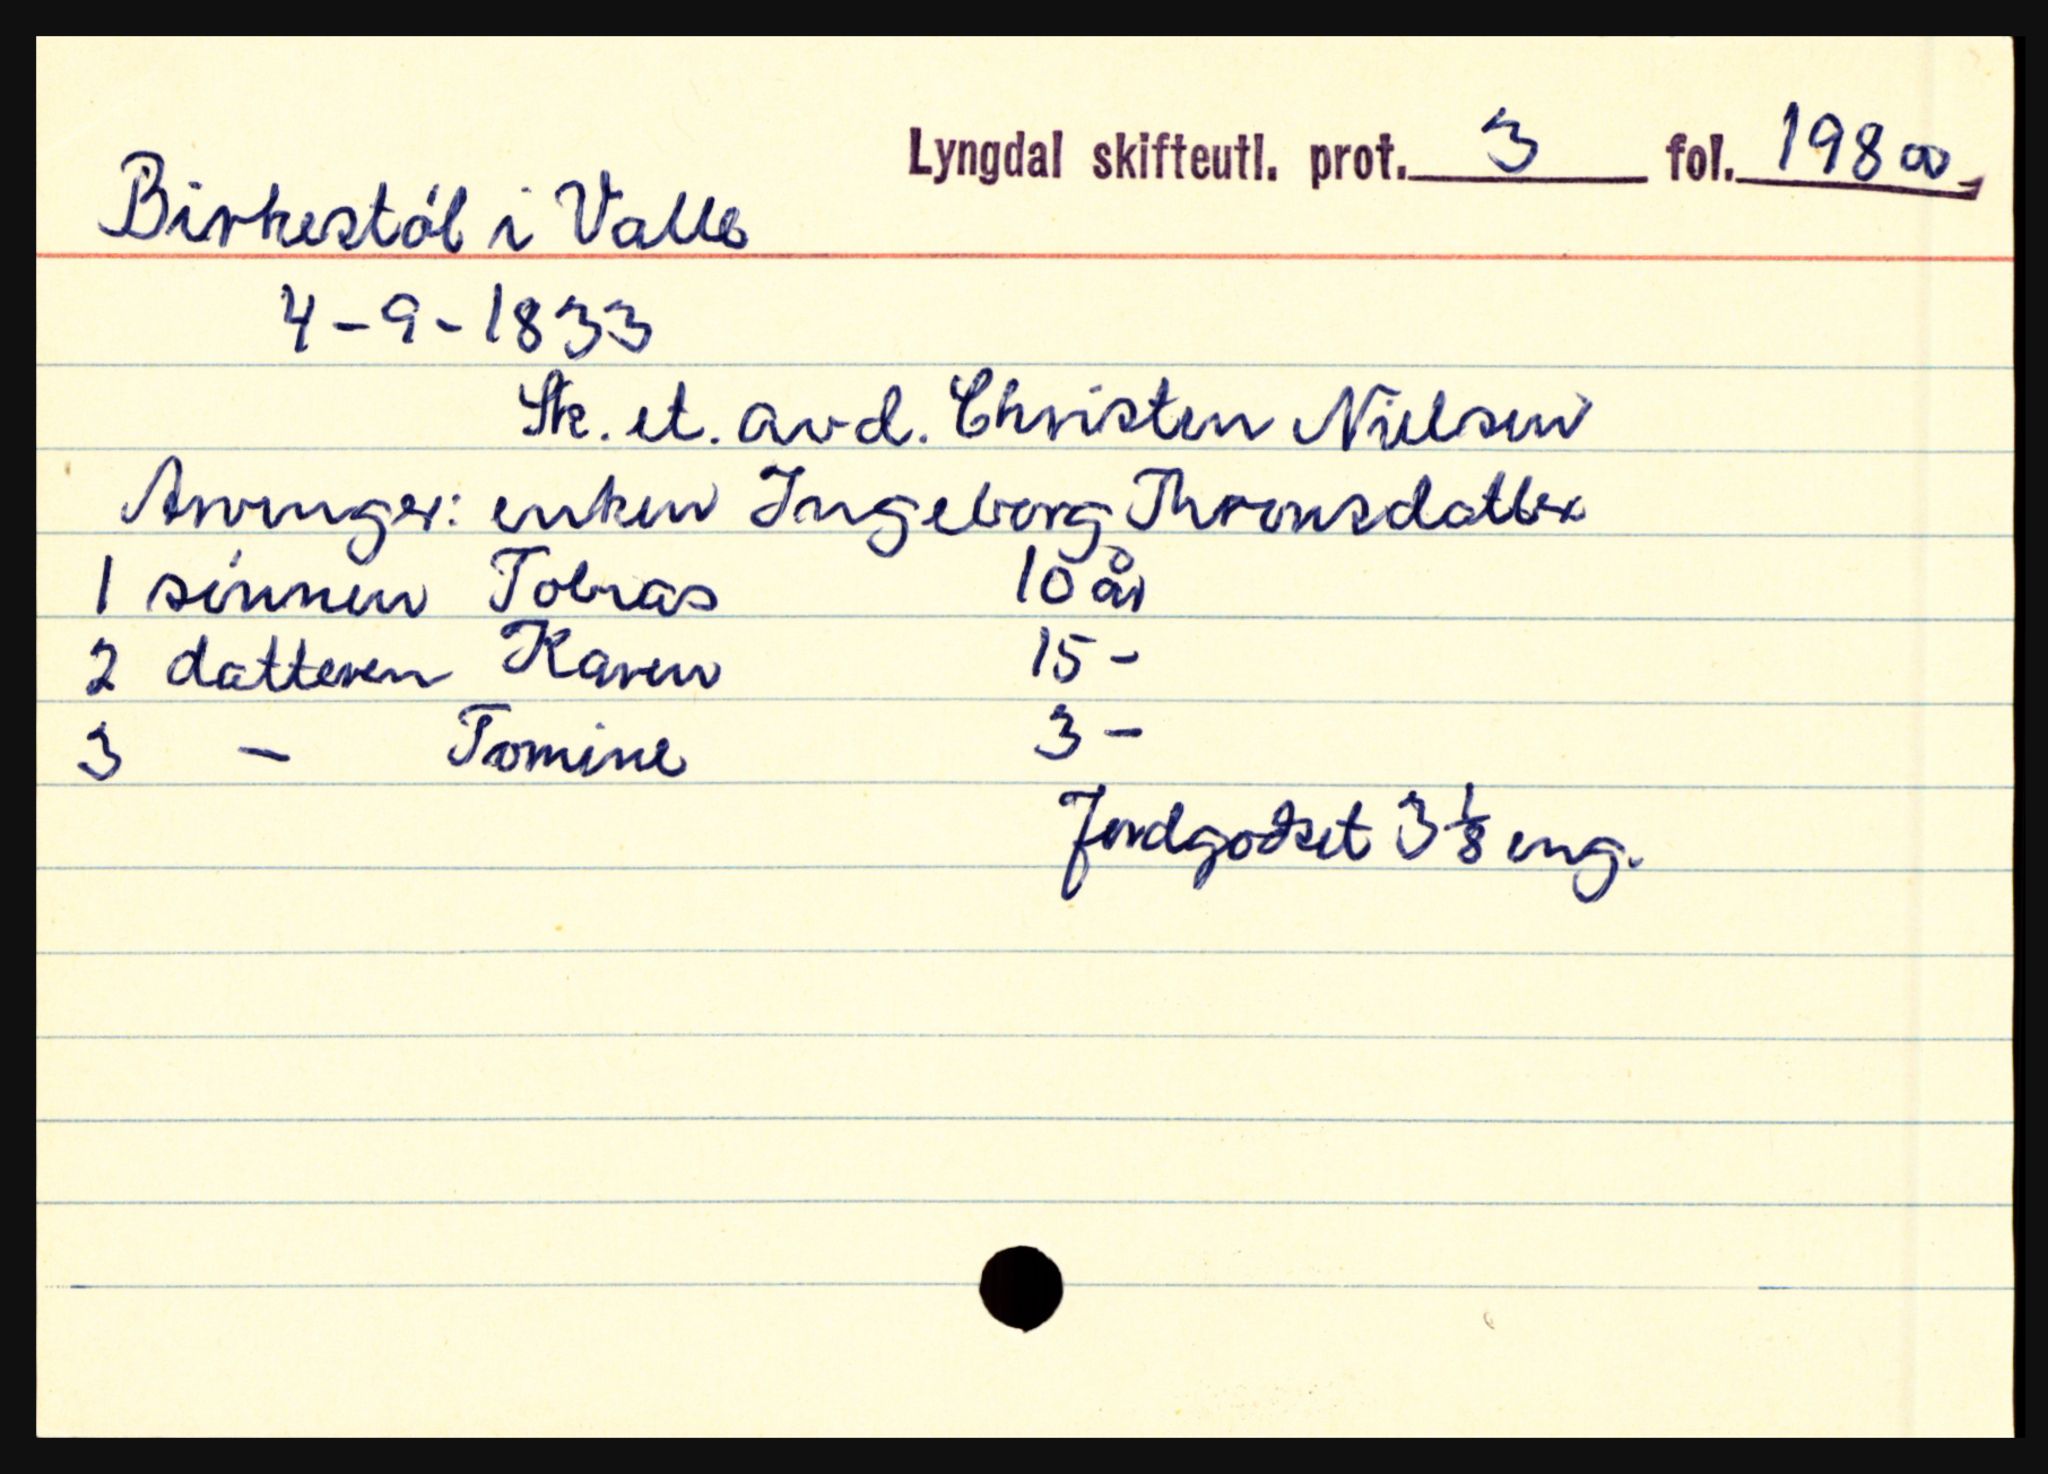 Lyngdal skifteutl. prot. 3 fol. 198
Birkestøl i Valle
4-9-1833
Sk. et. avd. Christen Nielsen
Arvinger: enken Ingeborg Thronsdatter
1 sønnen Tobias 10 år
2 datteren Karen 15 -
3 - Tomine 3 -
Jordgodset 3 1/8 eng.